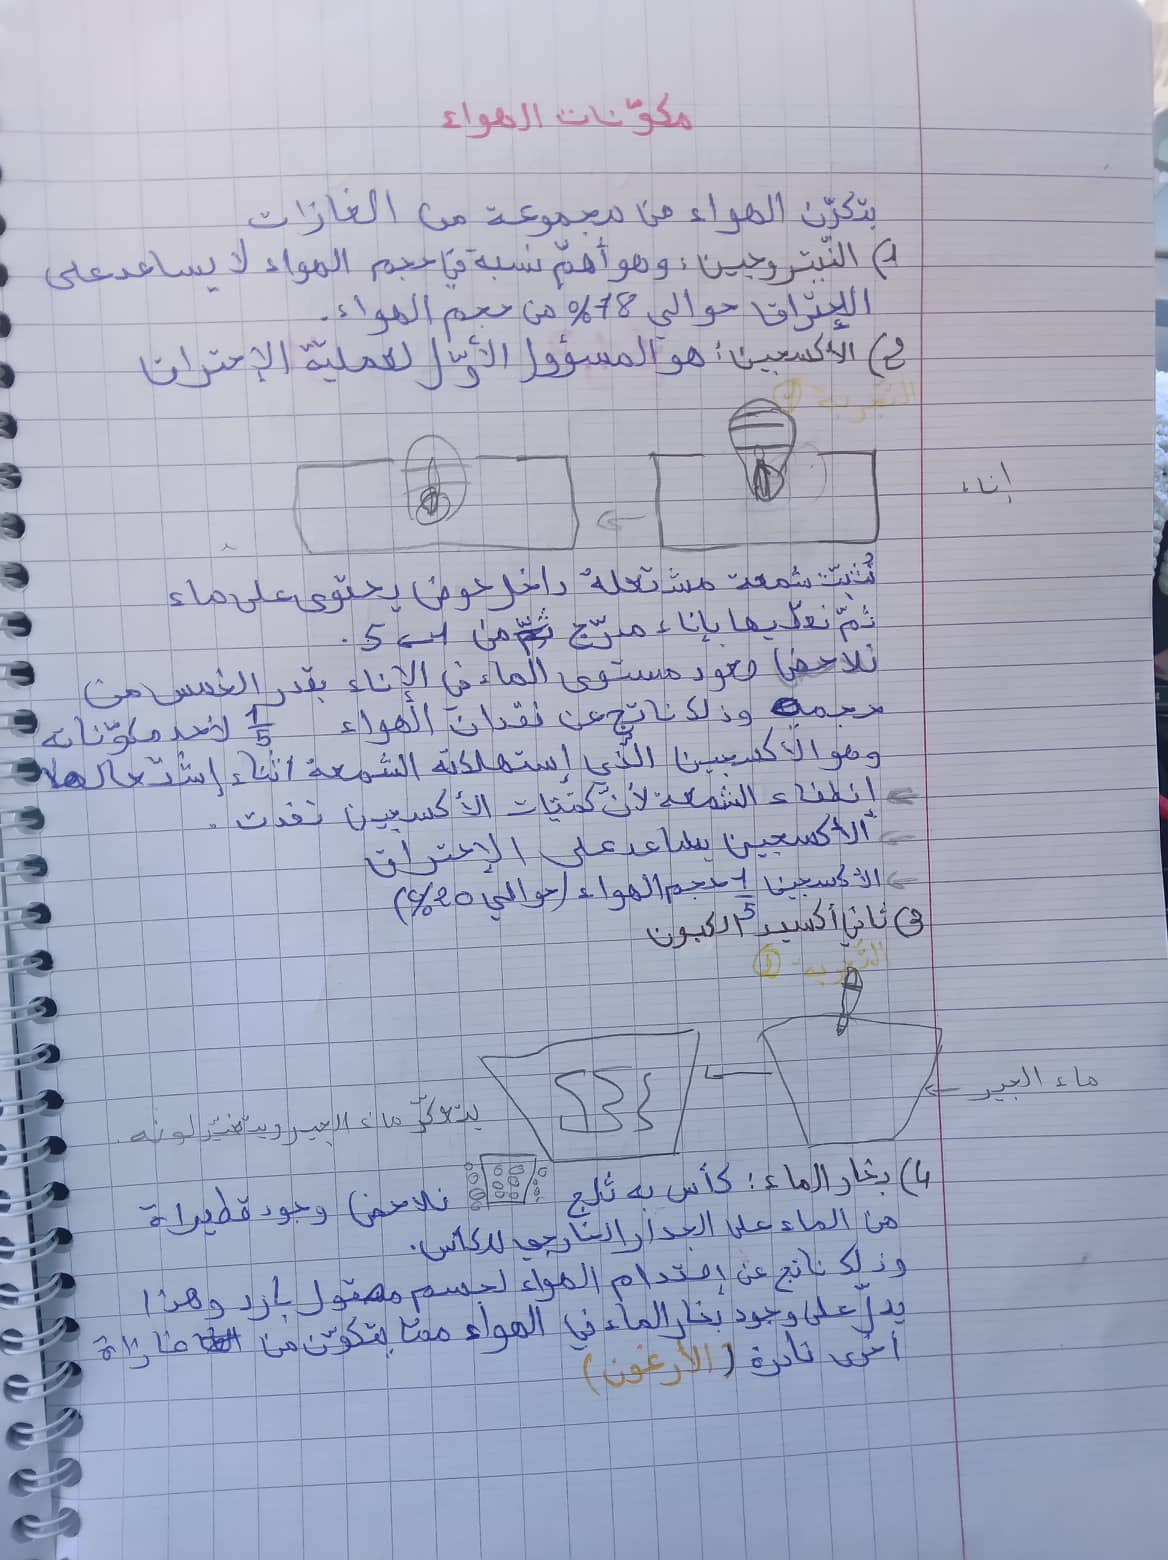 مكوّنات الهواء
يتكوّن الهواء من مجموعة من الغازات
1) النّيتروجين: وهو أهمّ نسبة في حجم الهواء لا يساعد على
الإحتراق حوالي 78% من حجم الهواء.
2) الأكسجين: هو المسؤول الأوّل لعمليّة الإحتراق
التجربة 1
إناء
نُثبّت شمعة مشتعلة داخل حوض يحتوي على ماء
ثمّ نغطيها بإناء مدرّج من 1 ← 5.
نلاحض صعود مستوى الماء في الإناء بقدر الخمس من
حجمه وذلك ناتج عن فقدان الهواء 1/5 لأحد مكوّناته
وهو الأكسجين الذّي إستهلكته الشمعة أثناء إشتعالها
← انطفاء الشمعة لأنّ كميّات الأكسجين نفدت.
← الأكسجين يساعد على الإحتراق
← الأكسجين 1/5 حجم الهواء (حوالي 20%)
3) ثاني أكسيد الكبون
التّجربة 2
ماء الجير
يتعكّر ماء الجير ويتغيّر لونه.
4) بخار الماء: كأس به ثلج نلاحض وجود قطيراة
من الماء على الجدار الخارجي للكأس.
وذلك ناتج عن إصتدام الهواء لجسم مصقول بارد وهذا
يدلّ على وجود بخار الماء في الهواء ممّا يتكوّن من غازاة
أخرى نادرة (الأرغون)